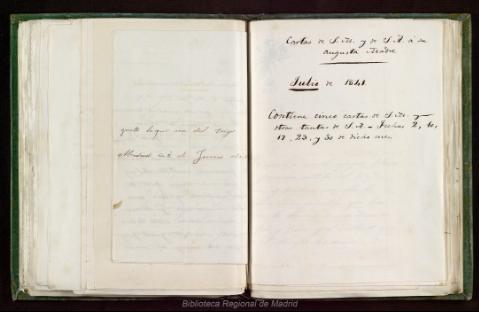 Madrid de Junio de
Cartas de S. M. y de S. A. á su
augusta Madre
Julio de 1841.
Contiene cinco cartas de S. M. y
otras tantas de S. A. = Fechas 2, 10,
17, 23, y 30 de dicho mes.
Biblioteca Regional de Madrid